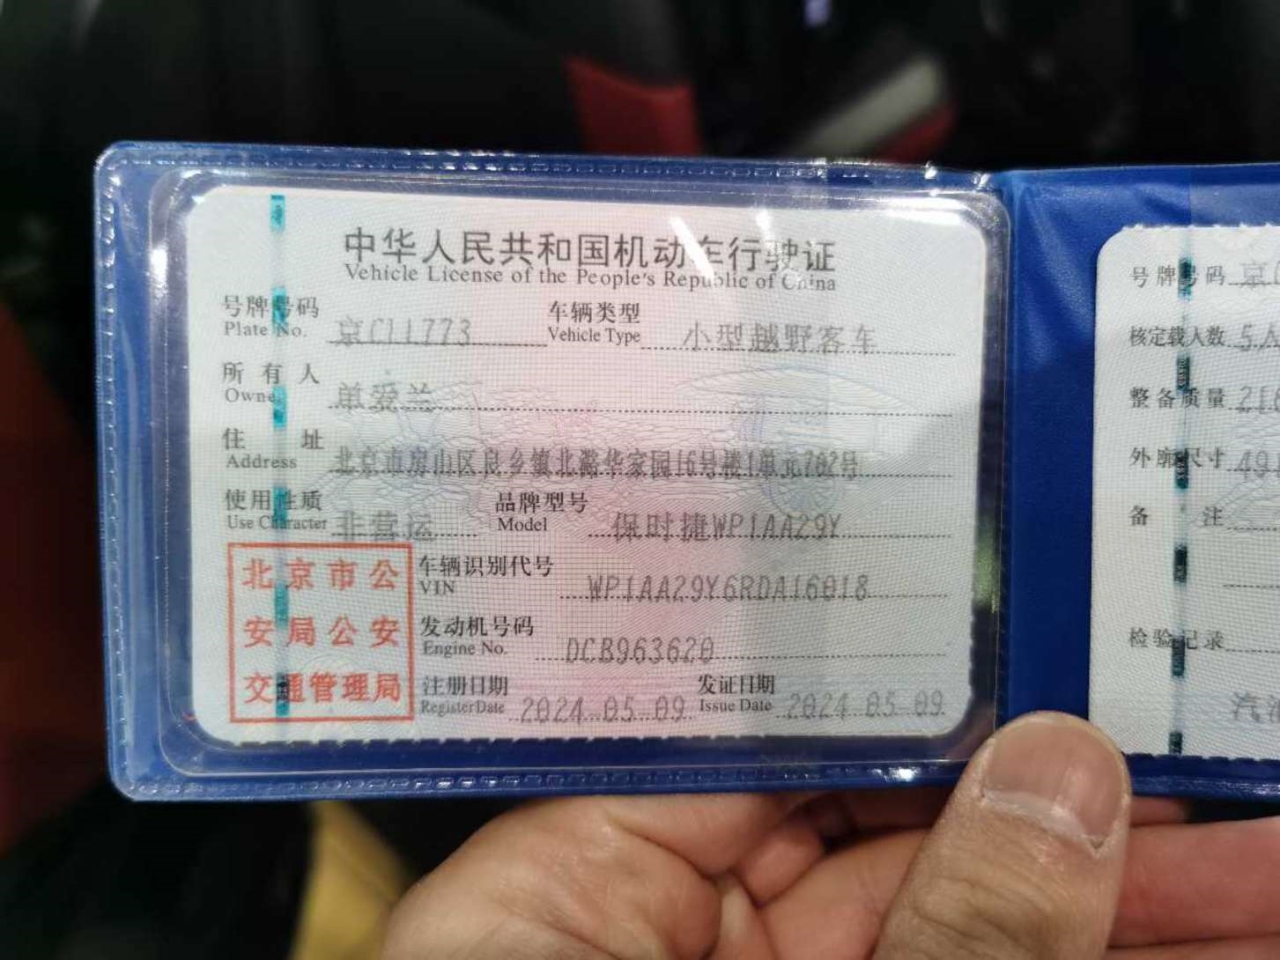 中华人民共和国机动车行驶证
Vehicle License of the People's Republic of China
号牌号码 京C11773 车辆类型 小型越野客车
Plate No. Vehicle Type
所有人 单爱兰
Owner
住址 北京市房山区良乡镇北潞华家园16号楼1单元702号
Address
使用性质 非营运 品牌型号 保时捷WP1AA29Y
Use Character Model
北京市公
安局公安
交通管理局
车辆识别代号 WP1AA29Y6RDA16018
VIN
发动机号码 DCB963620
Engine No.
注册日期 2024-05-09 发证日期 2024-05-09
Register Date Issue Date
号牌号码 京
核定载人数 5人
整备质量
外廓尺寸
备注
检验记录